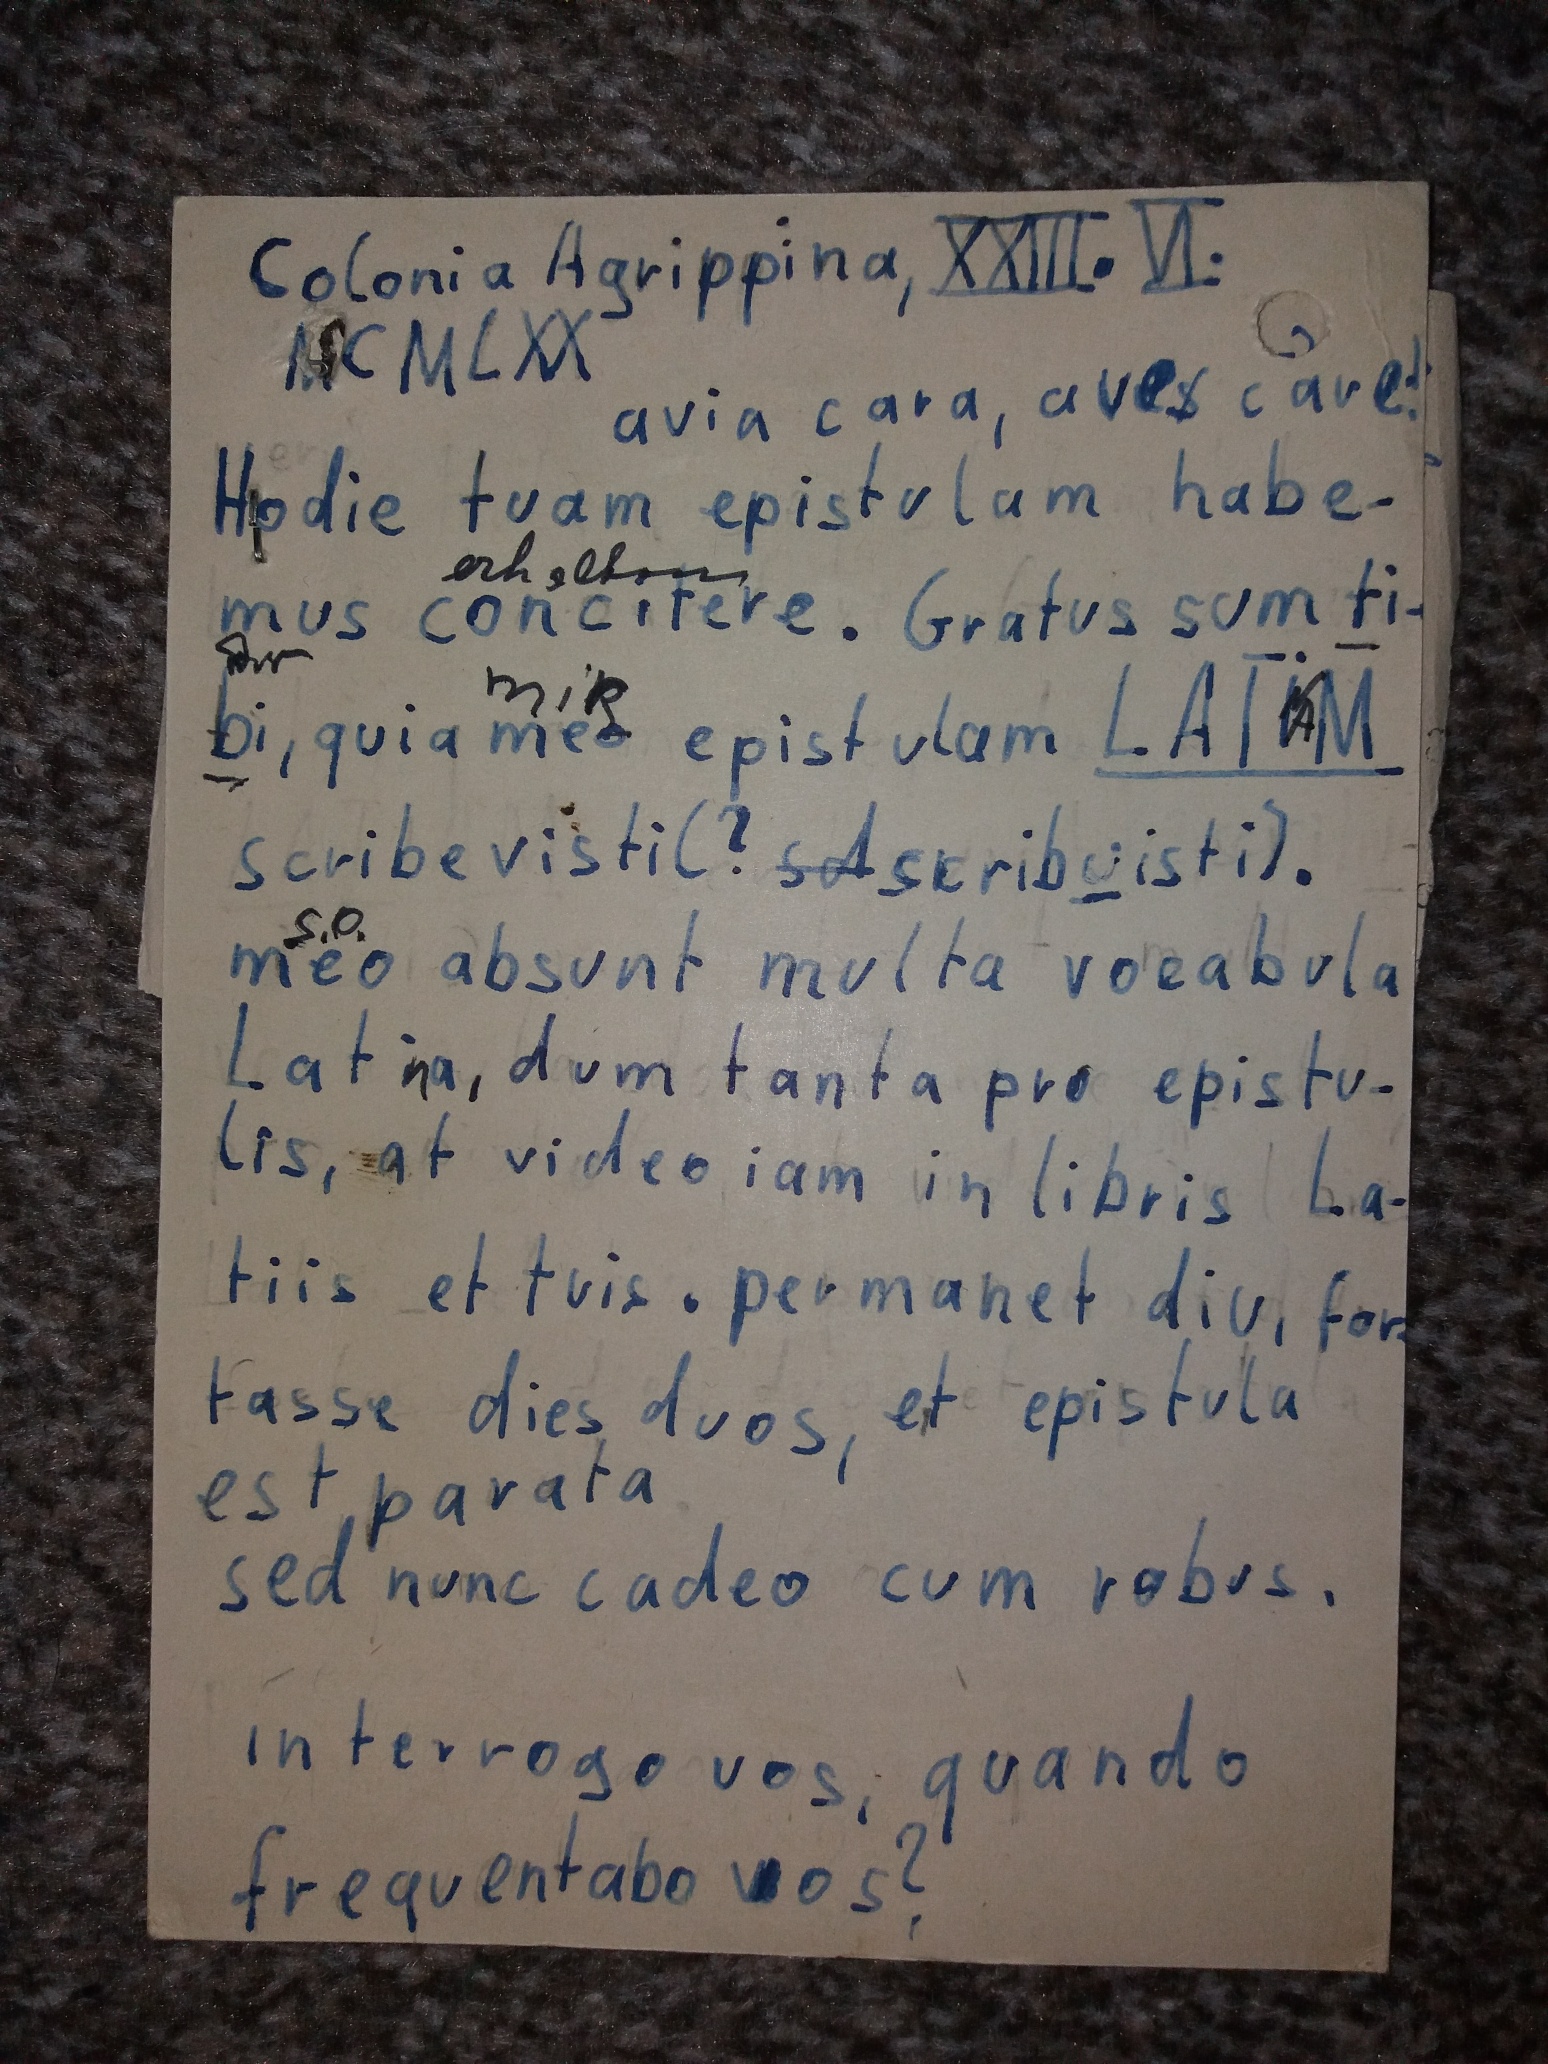 Colonia Agrippina, XXIII. VI.
MCMLXX
avia cara, aves care!
Hodie tuam epistulam habe-
erhalten
mus concitere. Gratus sum ti-
dir
mir
bi, quia meo epistulam LATIAM
scribevisti (? scribuisti).
s.o.
meo absunt multa vocabula
Latina, dum tanta pro epistu-
lis, at video iam in libris La-
tiis et tuis. permanet diu, for-
tasse dies duos, et epistula
est parata
sed nunc cadeo cum robus.
interrogo vos, quando
frequentabo vos?